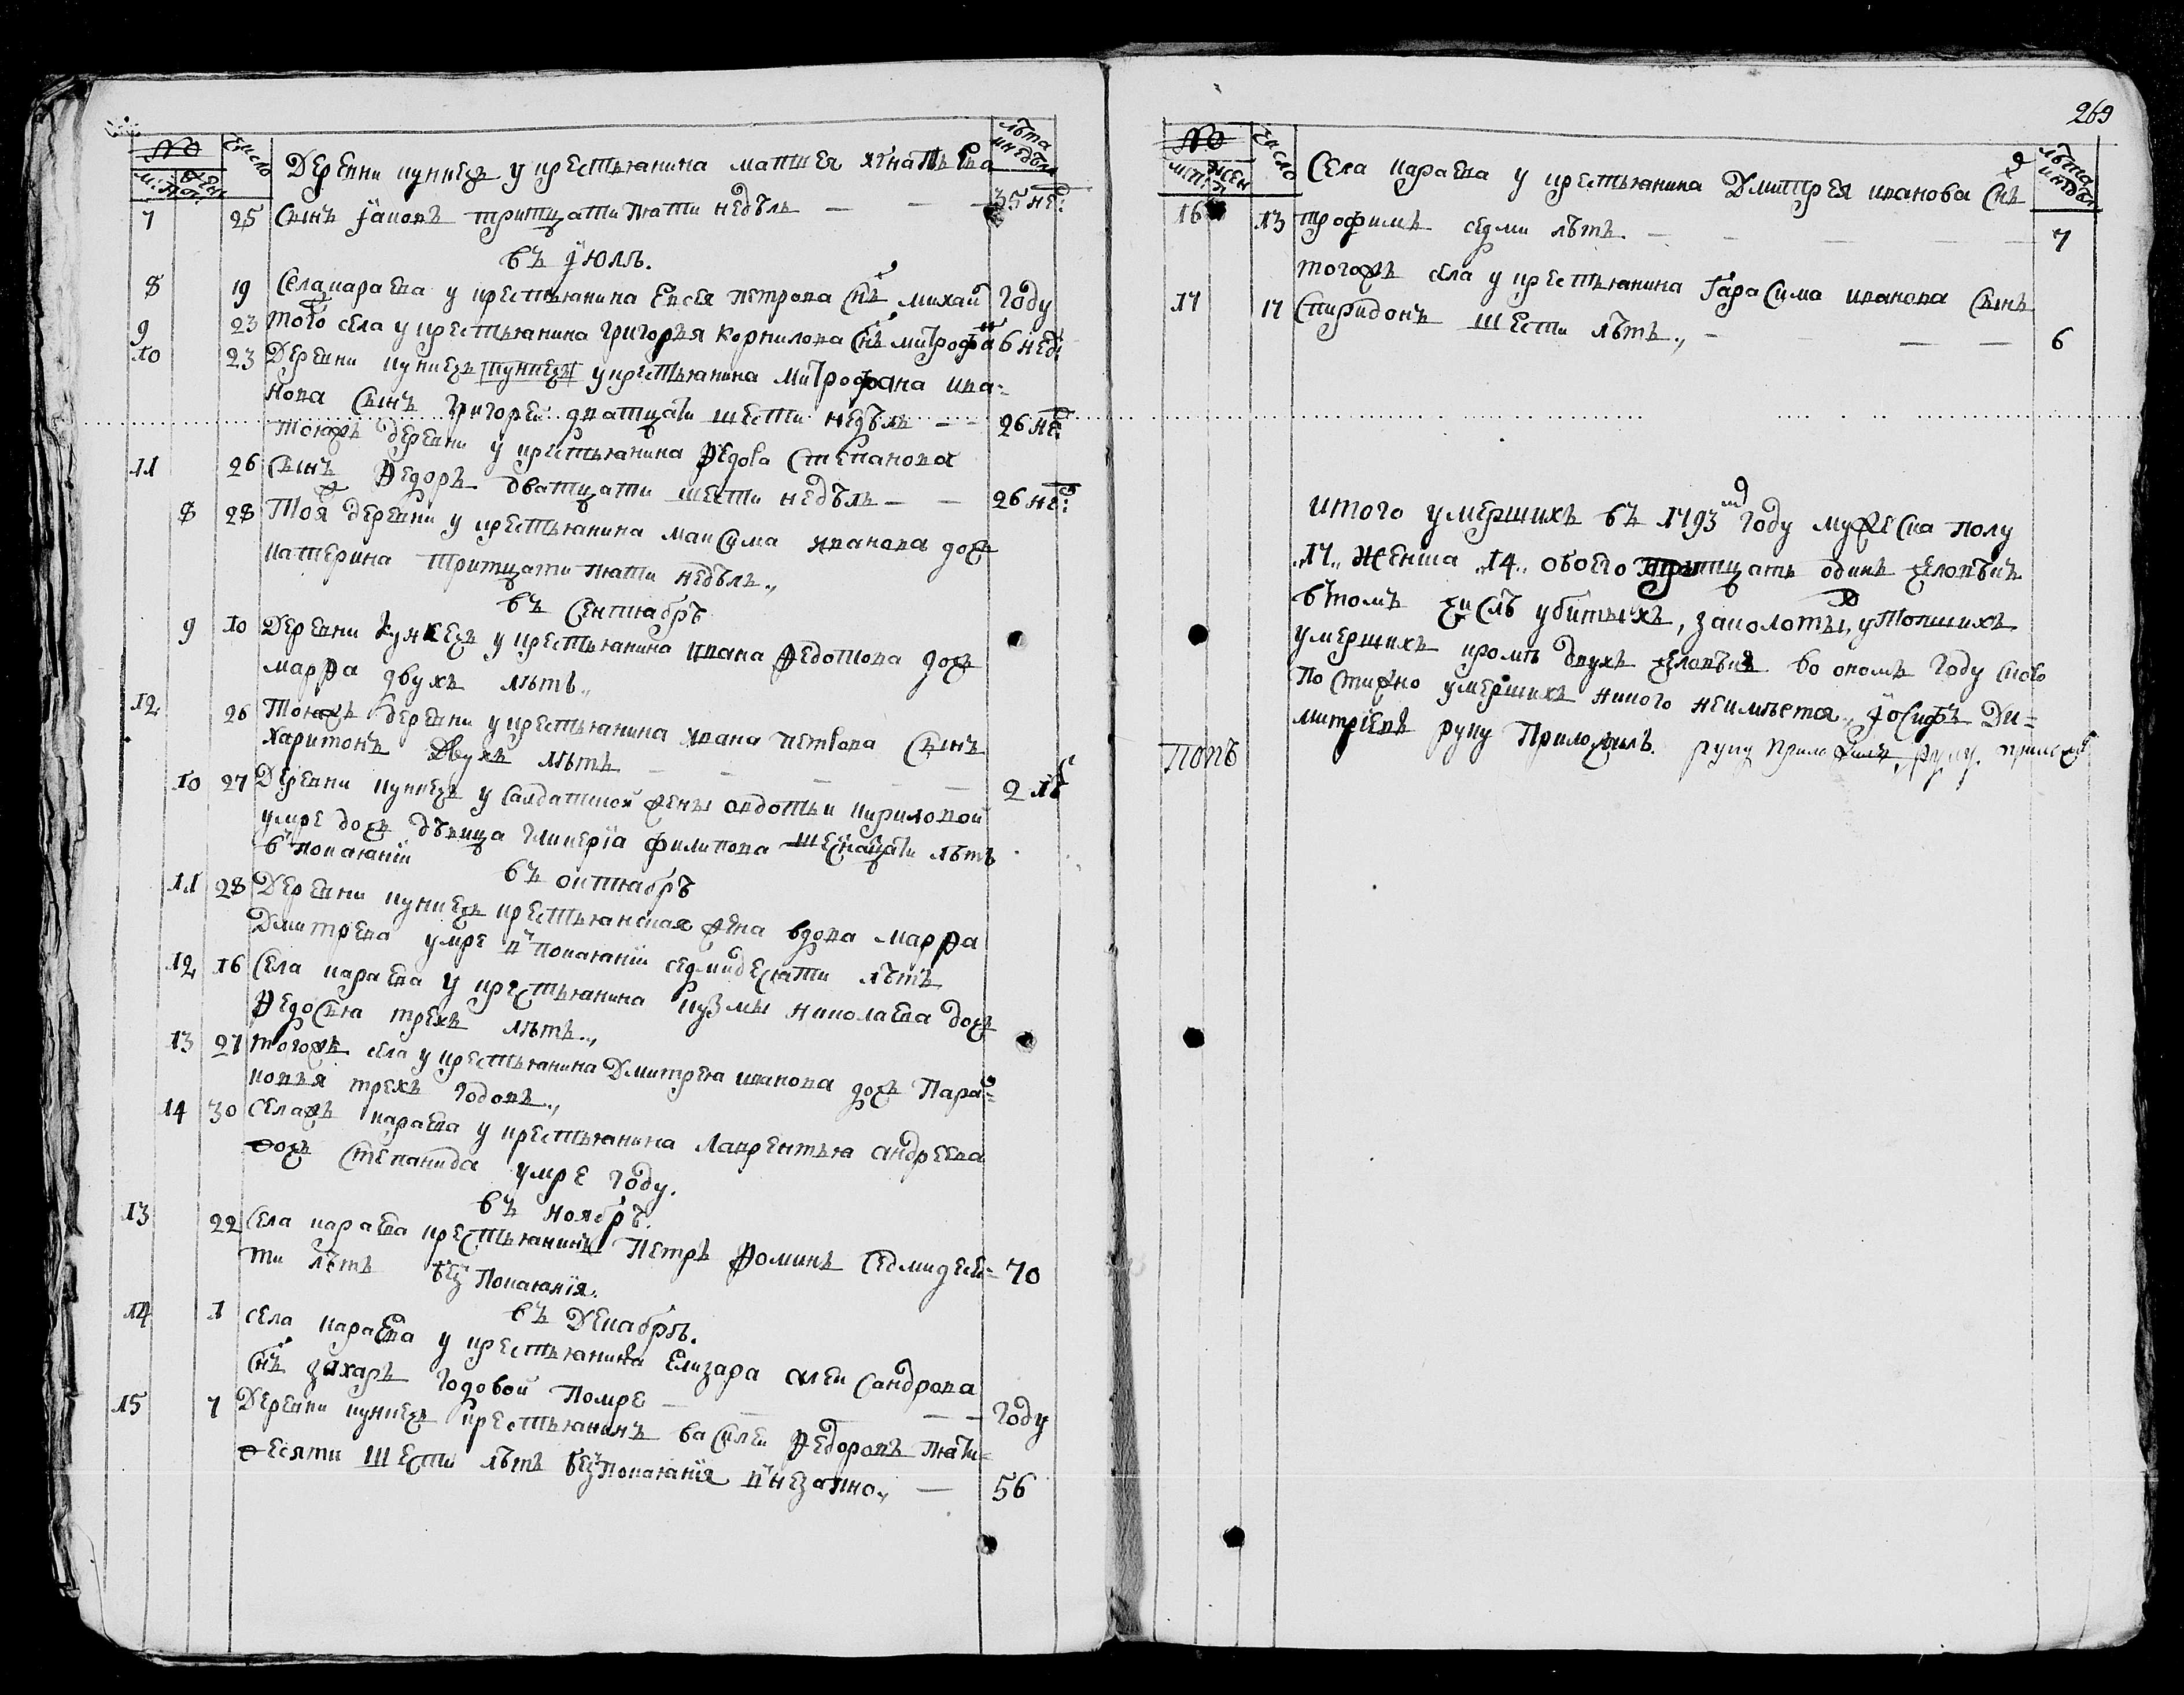 № число Деревни кунчехъ у крестьянина матвея игнатьева лѣта и недѣли
м: п: жен: п:
7 25 сынъ іаковъ тритцати пяти недѣль — — — 35 не:
въ іюлѣ.
8 19 села караева у крестьянина евсея петрова снъ михаи году
9 23 того села у крестьянина григорья корнилова снъ митрофа 6 нед:
10 23 деревни кунчехъ у крестьянина митрофана ива=
нова сынъ григореи дватцати шести недѣль — — 26 не:
тоюжъ деревни у крестьянина ѳедора степанова
11 26 сынъ ѳедоръ дватцати шести недѣль — — 26 не:
8 28 Тоя деревни у крестьянина максима иванова дочь
катерина тритцати пяти недѣль.,
въ сентябрѣ
9 10 деревни кунчехъ у крестьянина ивана ѳедотова дочь
марѳа двухъ лѣтъ.,
12 26 тоюжъ деревни у крестьянина ивана петрова сынъ
харитонъ двухъ лѣтъ — — — — 2 лѣ
10 27 деревни кунчехъ у салдатской жены авдотьи кириловой
умре дочь дѣвица гликерїа филипова шеснацати лѣтъ
в покаянїи
въ октябрѣ
11 28 деревни кунчехъ крестьянская жена вдова марѳа
Дмитрева умре в покаянїи седмидесяти лѣтъ
12 16 села караева у крестьянина кузмы николаева дочь
ѳедосья трехъ лѣтъ.,
13 27 тогожъ села у крестьянина Дмитрея иванова дочь Пара=
ковья трехъ годовъ.,
14 30 селажъ караева у крестьянина лаврентья андреева
дочь степанида умре году.
въ ноябрѣ.
13 22 села караева крестьянинъ Петръ ѳоминъ седмидеся= 70
ти лѣтъ безъ покаянїя.
въ декабрѣ.
14 1 села караева у крестьянина елизара александрова
снъ захаръ годовой помре — — — — году
15 7 деревни кунчехъ крестьянинъ василеи ѳедоровъ пяти=
десяти шести лѣтъ безъ покаянїя внезапно., — 56
269
№ число Села караева у крестьянина Дмитрея иванова снъ лѣта и недѣли
м: п: жен
16 13 трофимъ седми лѣтъ. — — — — 7
тогожъ села у крестьянина гарасима иванова сынъ
17 17 спиридонъ шести лѣтъ., — — — 6
итого умершихъ въ 1793 м году мужеска полу
.,17., женска .,14., обоего тритцать одинъ человѣкъ
в томъ числѣ убитыхъ, заколоты, утопшихъ
умершихъ кромѣ двухъ человѣкъ во ономъ году скоро
постижно умершихъ никого неимѣется., іосифъ Ди=
Попъ митріевъ руку Приложилъ.